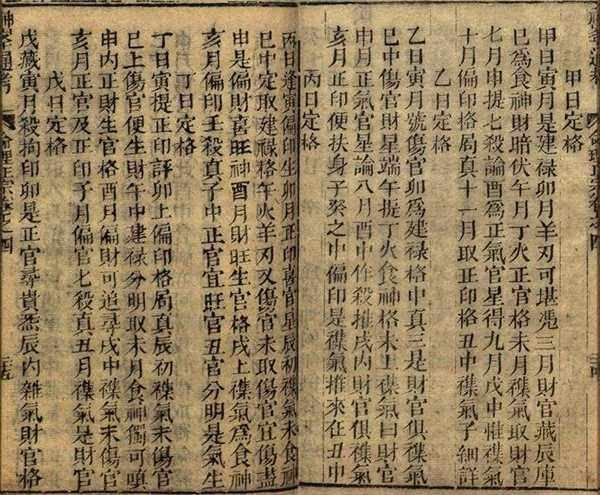 甲日定格
甲日寅月是建祿卯月羊刃可堪凴三月財官藏辰庫
巳爲食神財暗伏午月丁火正官格未月襍氣取財官
七月申提七殺論酉爲正氣官星得九月戌中惟襍氣
十月偏印格局真十一月取正印格丑中襍氣子細詳
乙日定格
乙日寅月號傷官卯爲建祿格中真三是財官俱襍氣
巳中傷官財星端午提丁火食神格未上襍氣曰財官
申月正氣官星論八月酉中作殺推戌內財官俱襍氣
亥月正印便扶身子癸之中偏印是襍氣推來在丑中
丙日定格
丙日逢寅偏印生卯月正印喜官星辰初襍氣末食
巳中定取建祿格午火羊刃又傷官未取傷官宜傷盡
申是偏財喜旺神酉月財旺生官格戌上襍氣爲食神
亥月偏印壬殺真子中正官宜旺官丑官分明是氣生
丁日定格
丁日寅提正印評卯上偏印格局真辰初襍氣末傷官
巳上傷官便生財午中建祿分明取未月食神獨可嘆
申內正財生官格酉月偏財可追尋戌中襍氣末傷官
亥月正官及正印子月偏官七殺真丑月襍氣是財官
戊日定格
戊藏寅月殺拘印卯是正官尋貴烝辰內雜氣財官格
神峯通考 命理正宗卷之四 三十五